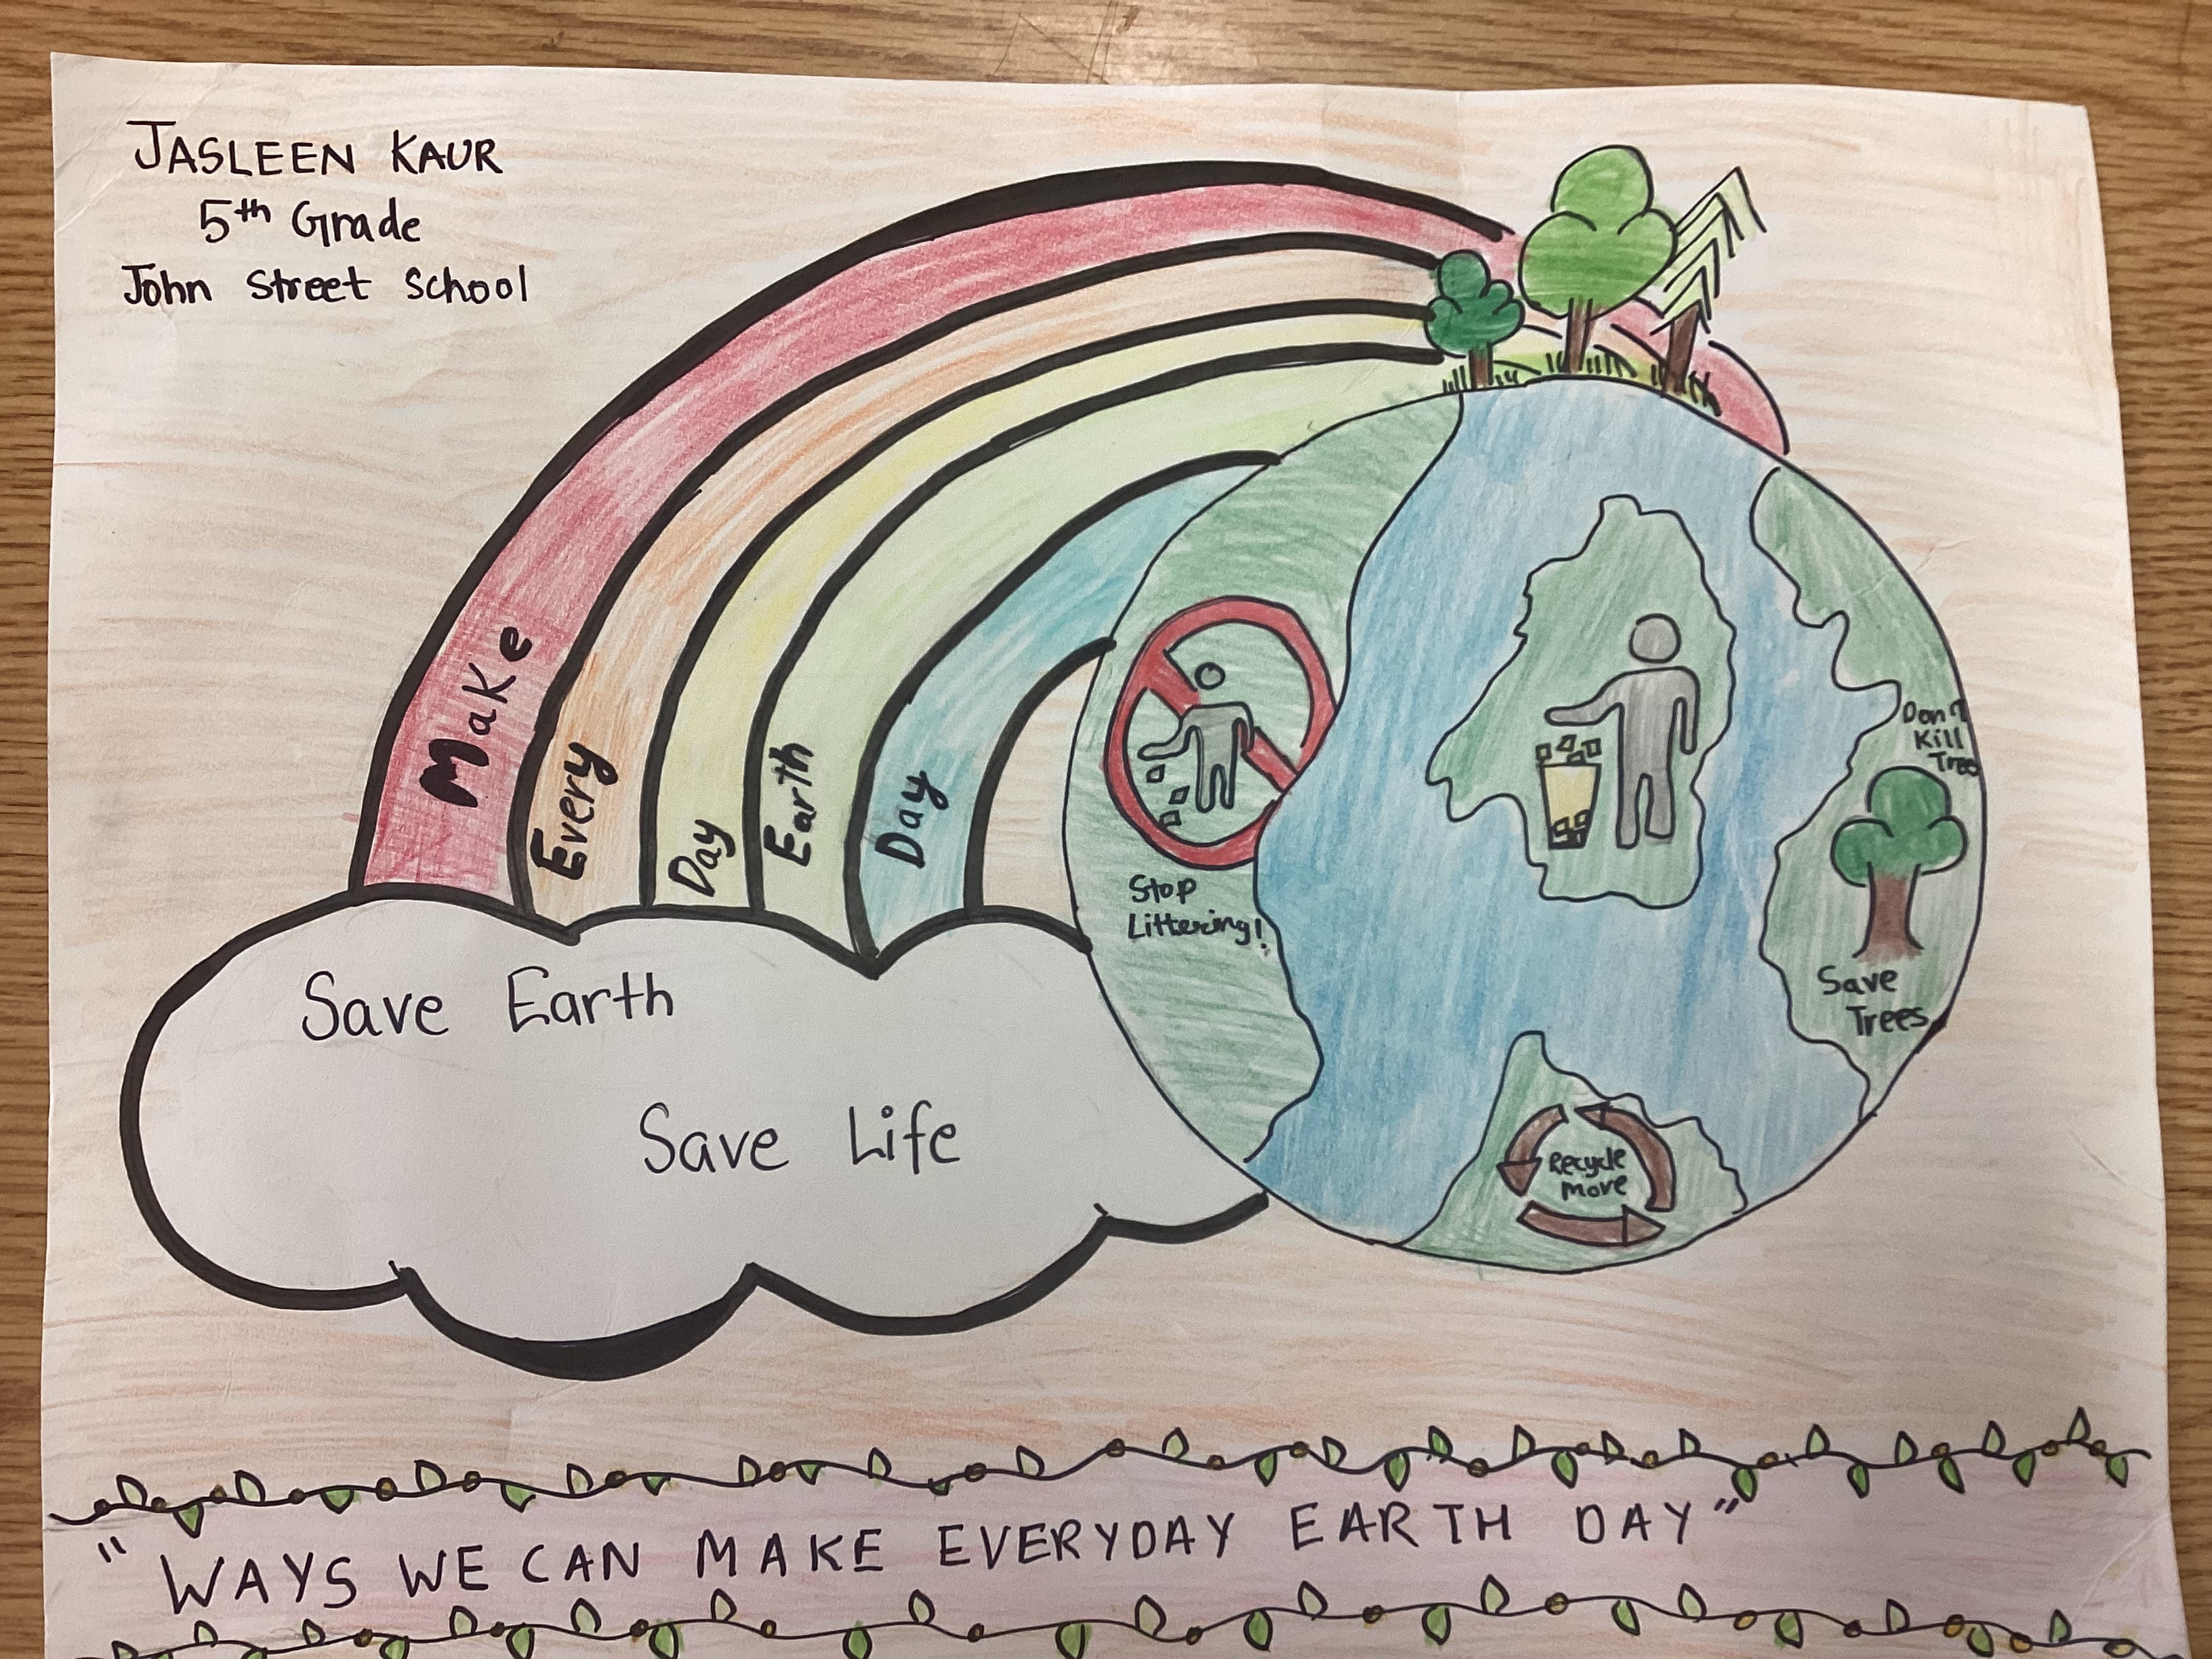 JASLEEN KAUR
5th Grade
John Street School
Make
Every
Day
Earth
Day
Save Earth
Save Life
Stop
Littering!
Don't
Kill
Tree
Save
Trees
Recycle
more
"WAYS WE CAN MAKE EVERYDAY EARTH DAY"